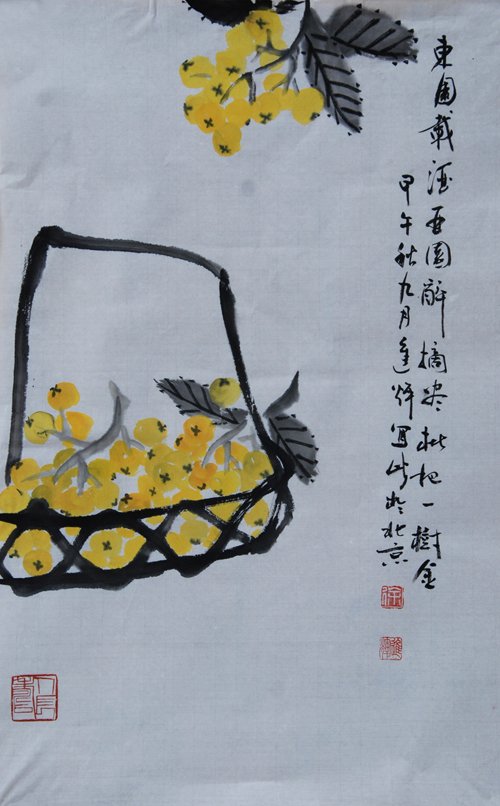 東園載酒西園醉摘盡枇杷一樹金
甲午秋九月進輝寫此於北京